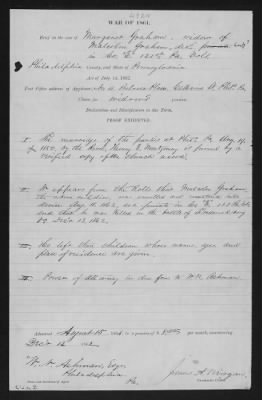 WAR OF 1861.
Brief in the case of Margaret Graham, widow of
Malcolm Graham, dec'd
in Co. "E" 121st Pa. Vols
Philadelphia County, and State of Pennsylvania
Act of July 14, 1862.
Post Office address of Applicant, Phil. Pa.
Claim for widow's pension
Declaration and Identification in due Form.
PROOF EXHIBITED.
I. The marriage of the parties at Phil. Pa. May 19
of 1850, by the Revd. Henry E. Montgomery is proved by a
verified copy of the church record.
II. It appears from the Rolls that Malcolm Graham,
the above soldier, was enrolled and mustered into
service Aug. 11, 1862, as a private in Co. "E" 121 Pa Vols
and that he was killed in the battle of Fredericksburg
Va. Dec. 13, 1862.
III. He left children whose names, ages and
place of residence are given.
IV. Power of attorney in due form to W. W. Ashman.
Admitted August 15, 1863, to a pension of $8.00 per month, commencing
Dec. 13, 1862
W. W. Ashman, Esqr.
Philadelphia
Pa.
Name and Residence of Agent.
Examining Clerk.